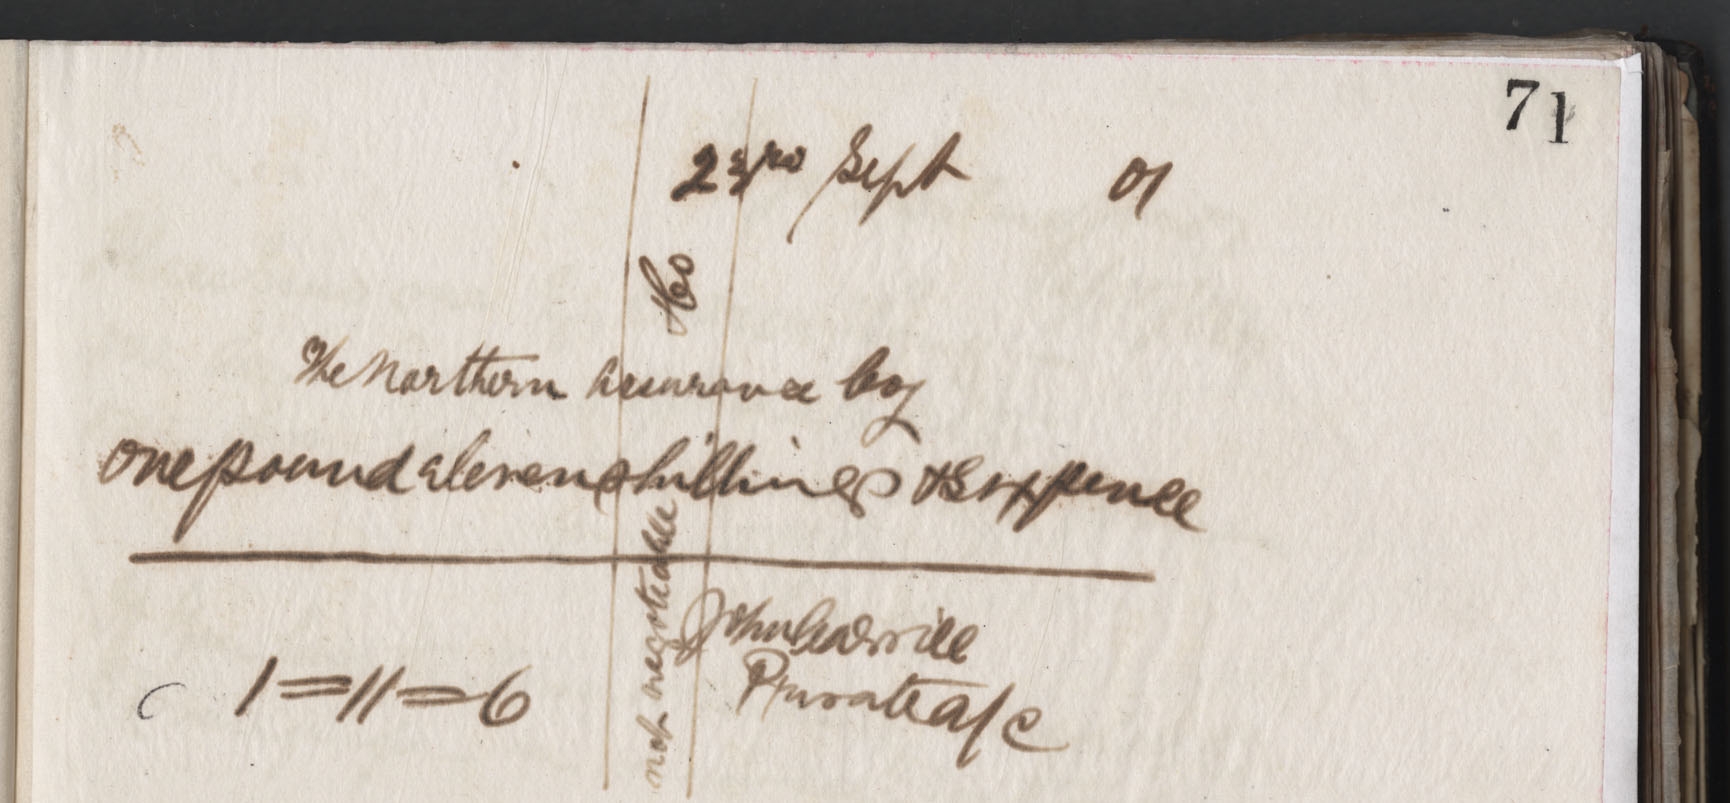 71
23rd Sept 01
The Northern Assurance Coy
One pound eleven shillings & Sixpence
1=11=6
John
Private a/c
not negotiable
& Co